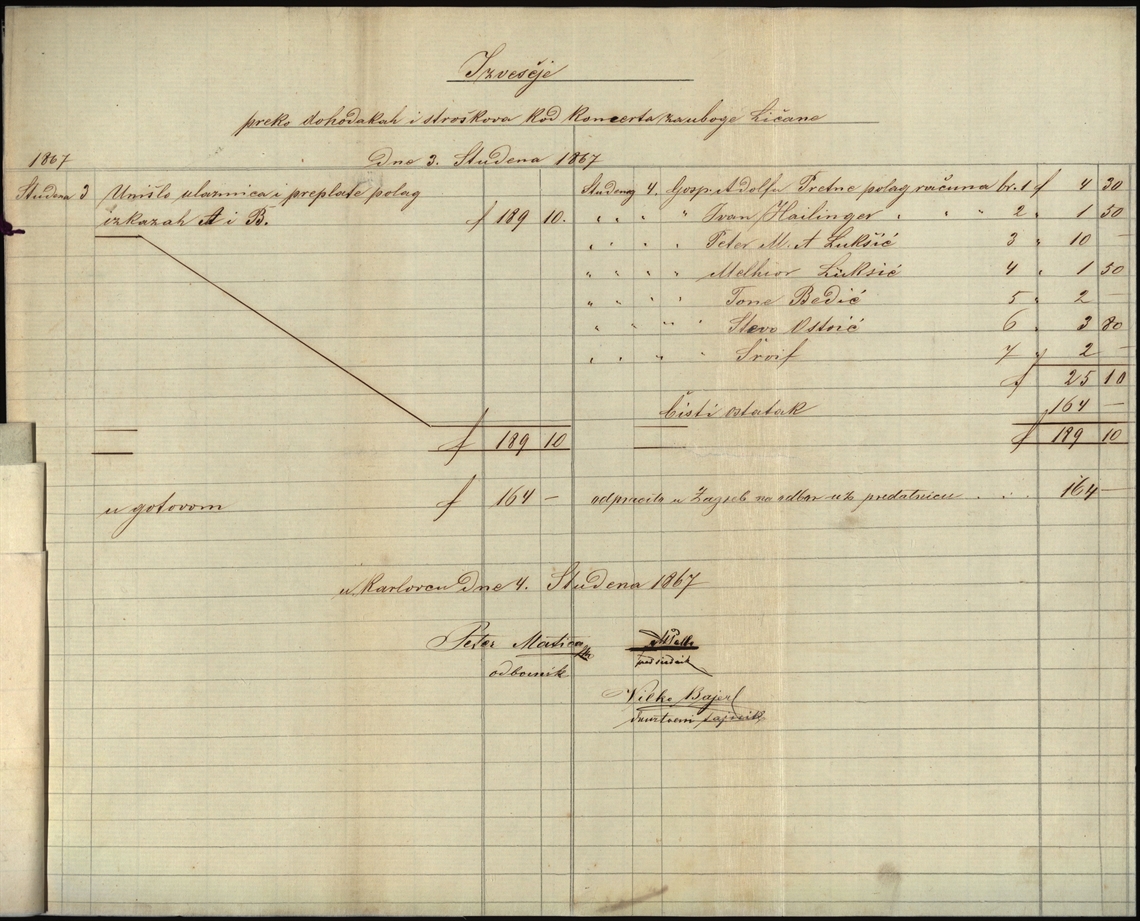 Izvesće
preko dohodakah i stroškova kod koncerta za uboge Ličane
1867 Dne 3. Studena 1867
Studena 3 Unišlo ulaznica i preplate polag
izkazah A i B. f 189 10.
Studenog 4. Gosp. Adolfu Pretne polag računa br. 1 f 4 30
" " " " Ivan Hailinger " " " 2 " 1 50
" " " " Peter M. A Lukšić 3 " 10 —
" " " " Melhior Lukšić 4 " 1 50
" " " " Tone Bedić 5 " 2 —
" " " " Stevo Ostoić 6 " 3 80
" " " " Šroif 7 " 2 —
f 25 10
čisti ostatak 164 —
f 189 10 f 189 10
u gotovom f 164 —
odpracito u Zagreb na odbor uz predatnicu . . . 164 —
u Karlovcu Dne 4. Studena 1867
Peter Matica
odbornik
predsednik
Vilko Bajer
družtveni tajnik